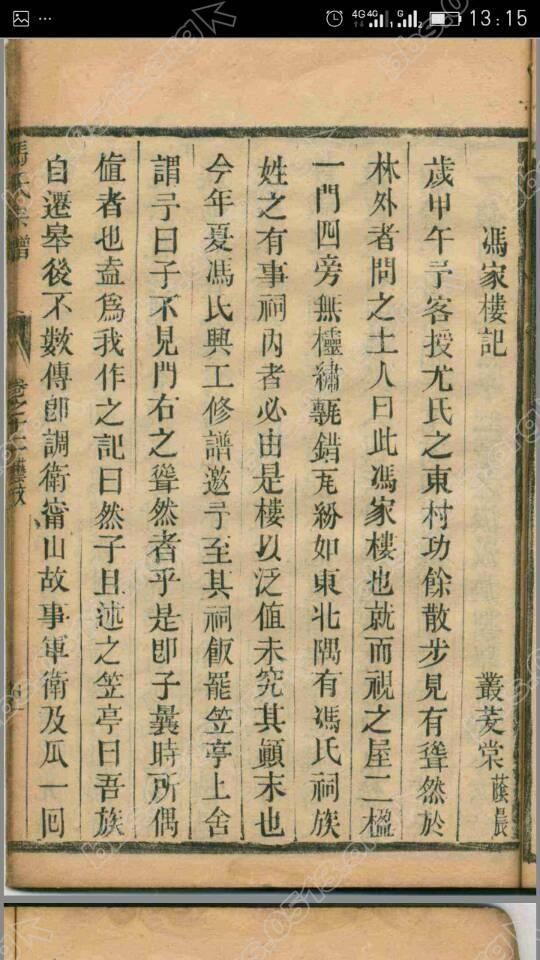 13:15
馮家樓記
叢茇棠蔭晨
歲甲午予客授尤氏之東村功餘散步見有聳然於
林外者問之土人曰此馮家樓也就而視之屋二楹
一門四旁無櫺繡甎錯瓦紛如東北隅有馮氏祠族
姓之有事祠內者必由是樓以泛值未究其顛末也
今年夏馮氏興工修譜邀予至其祠飯罷笠亭上舍
謂予曰子不見門右之聳然者乎是即子曩時所偶
值者也盍為我作之記曰然子且述之笠亭曰吾族
自遷皋後不數傳即調衛甯山故事軍衛及瓜一回
馮氏宗譜
卷之十二藝文
bbs.0513.org